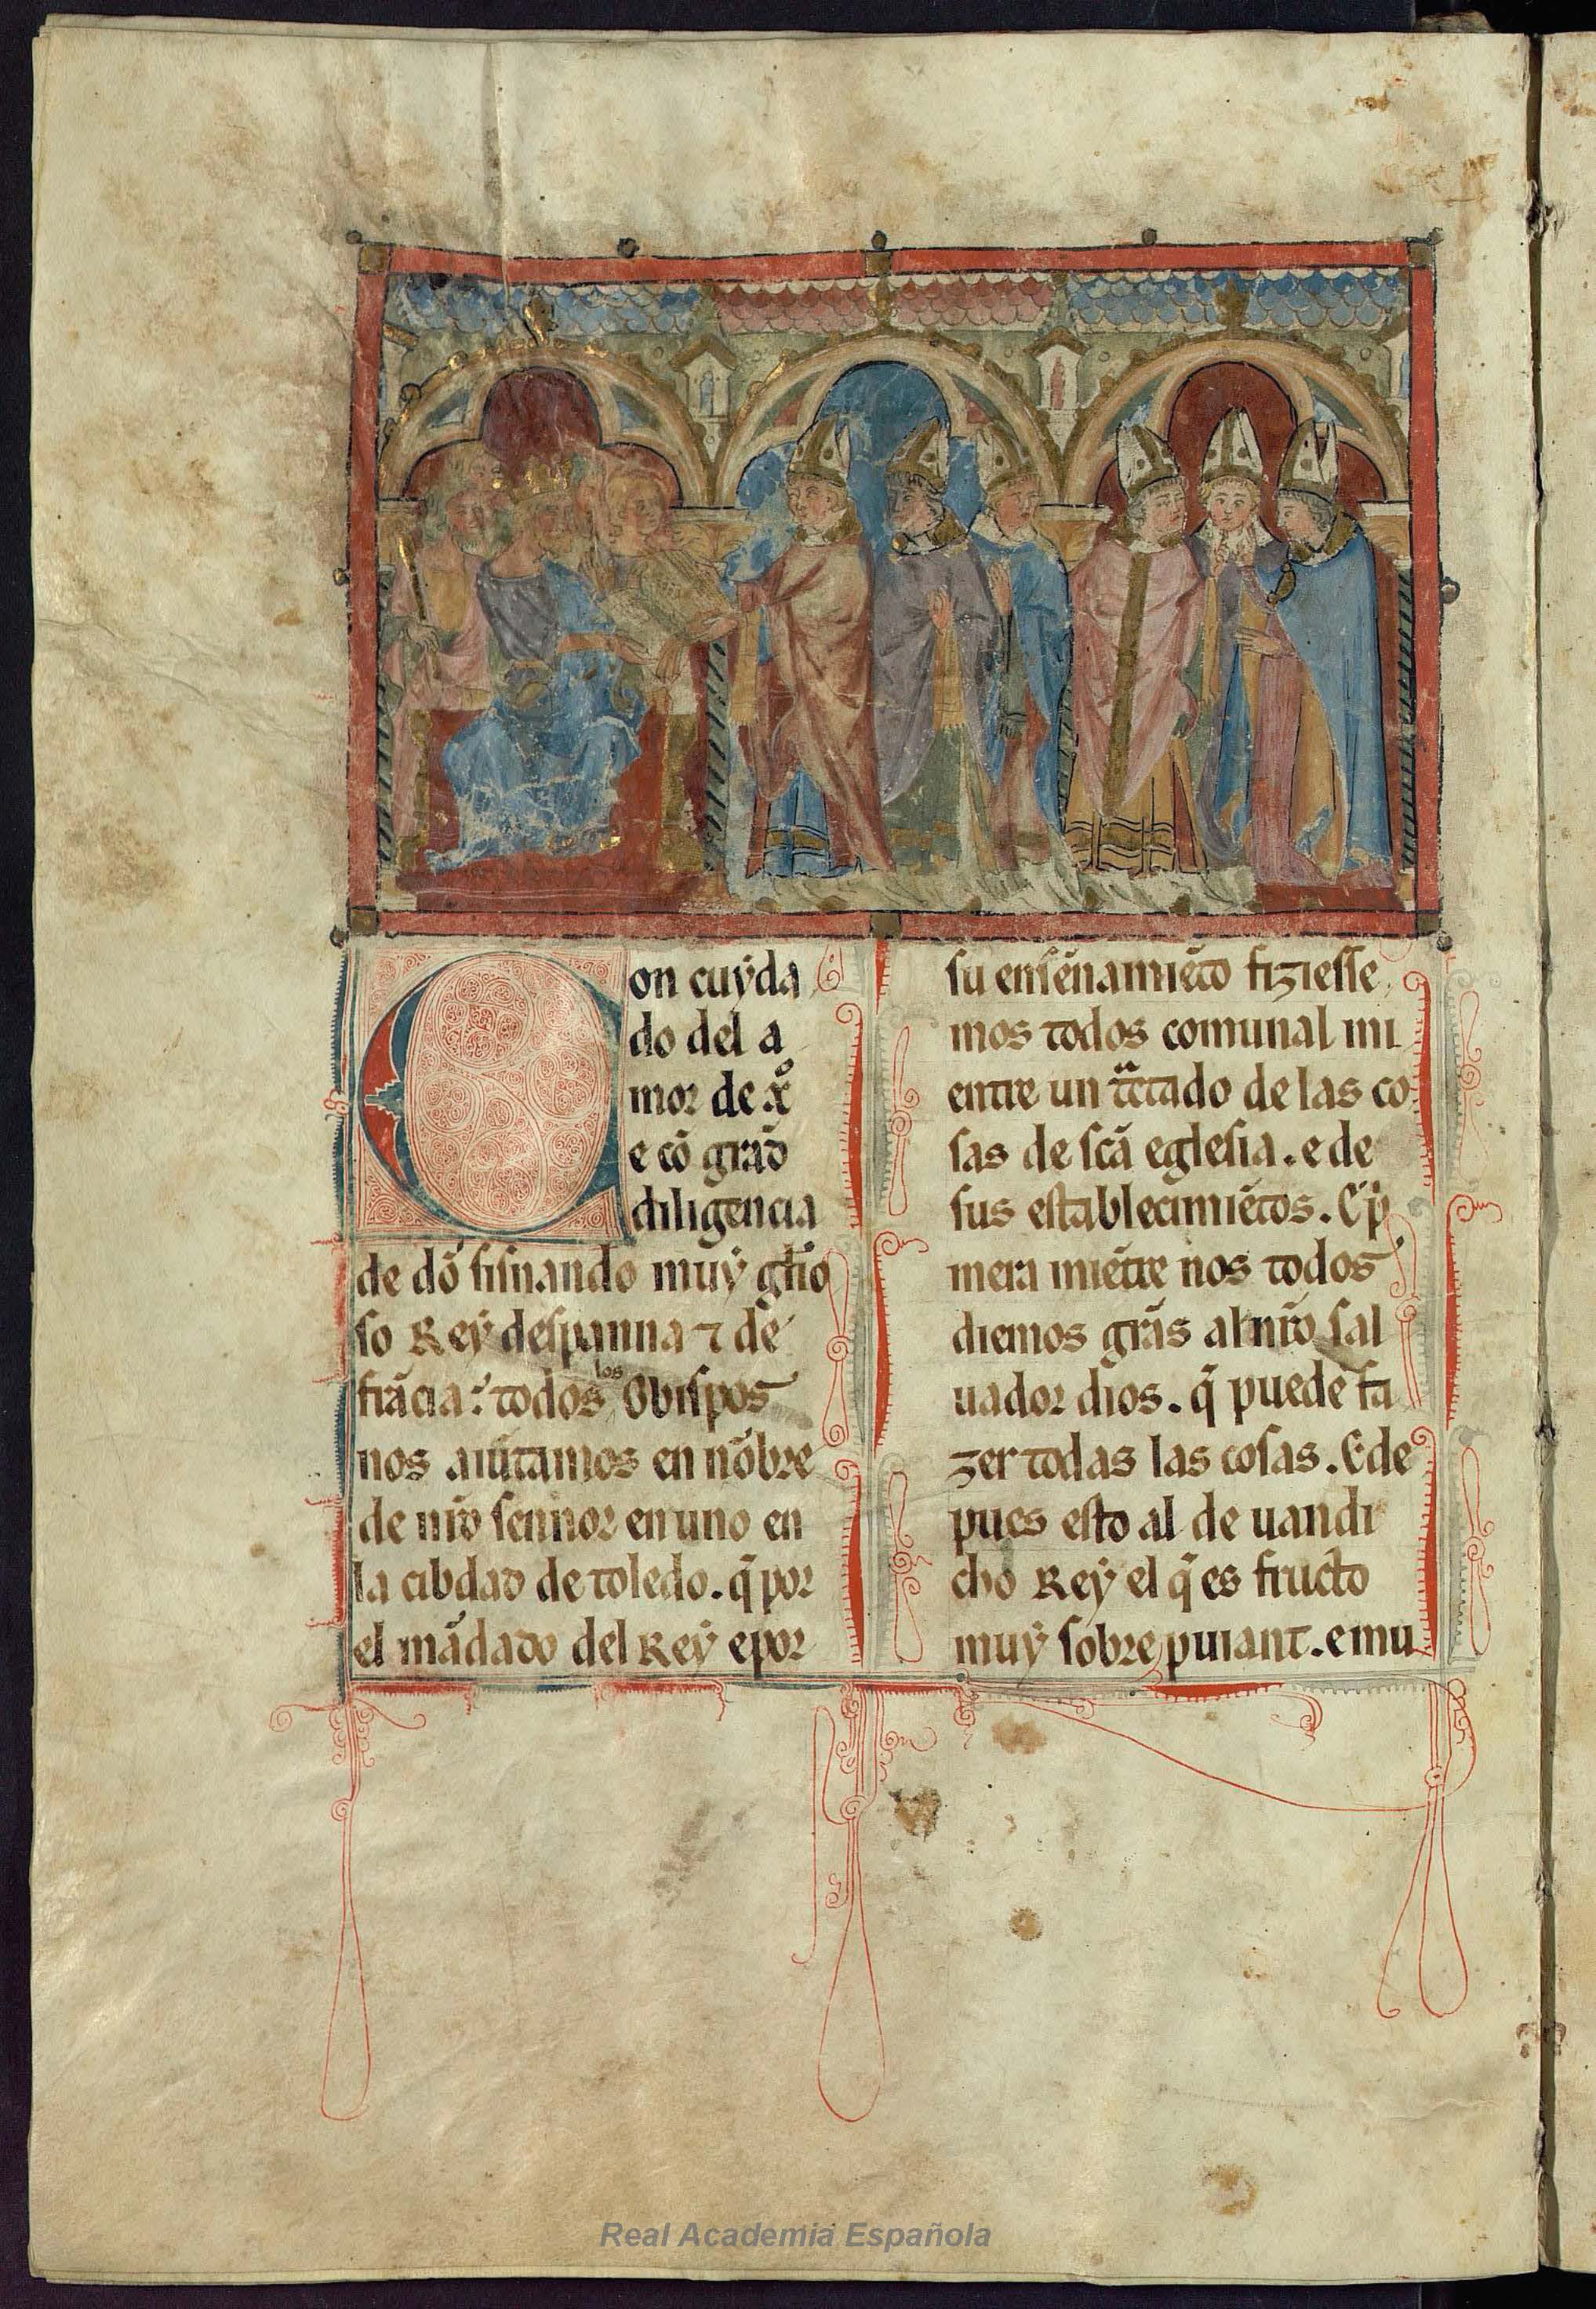 Con cuyda
do del a
mor de xo̊
e cō grād
diligencia
de dō sisnando muẏ gl̄io
so Reẏ despanna ⁊ de
frācia: todos los Obispos
nos aiūtamos en nōbre
de nr̄o sennor en uno en
la cibdad de toledo. q̄ por
el mādado del Reẏ e por
su ensēnamiēto fiziesse
mos todos comunal mi
entre un tͣctado de las co
sas de sc̄a eglesia. e de
sus establecimiētos. E pͥ
mera miētre nos todos
diemos grā̄s al nr̄o sal
uador dios. q̄ puede fa
zer todas las cosas. E de
pues esto al de uandi
cho Reẏ el q̄ es fructo
muẏ sobre puiant. e mu
Real Academia Española